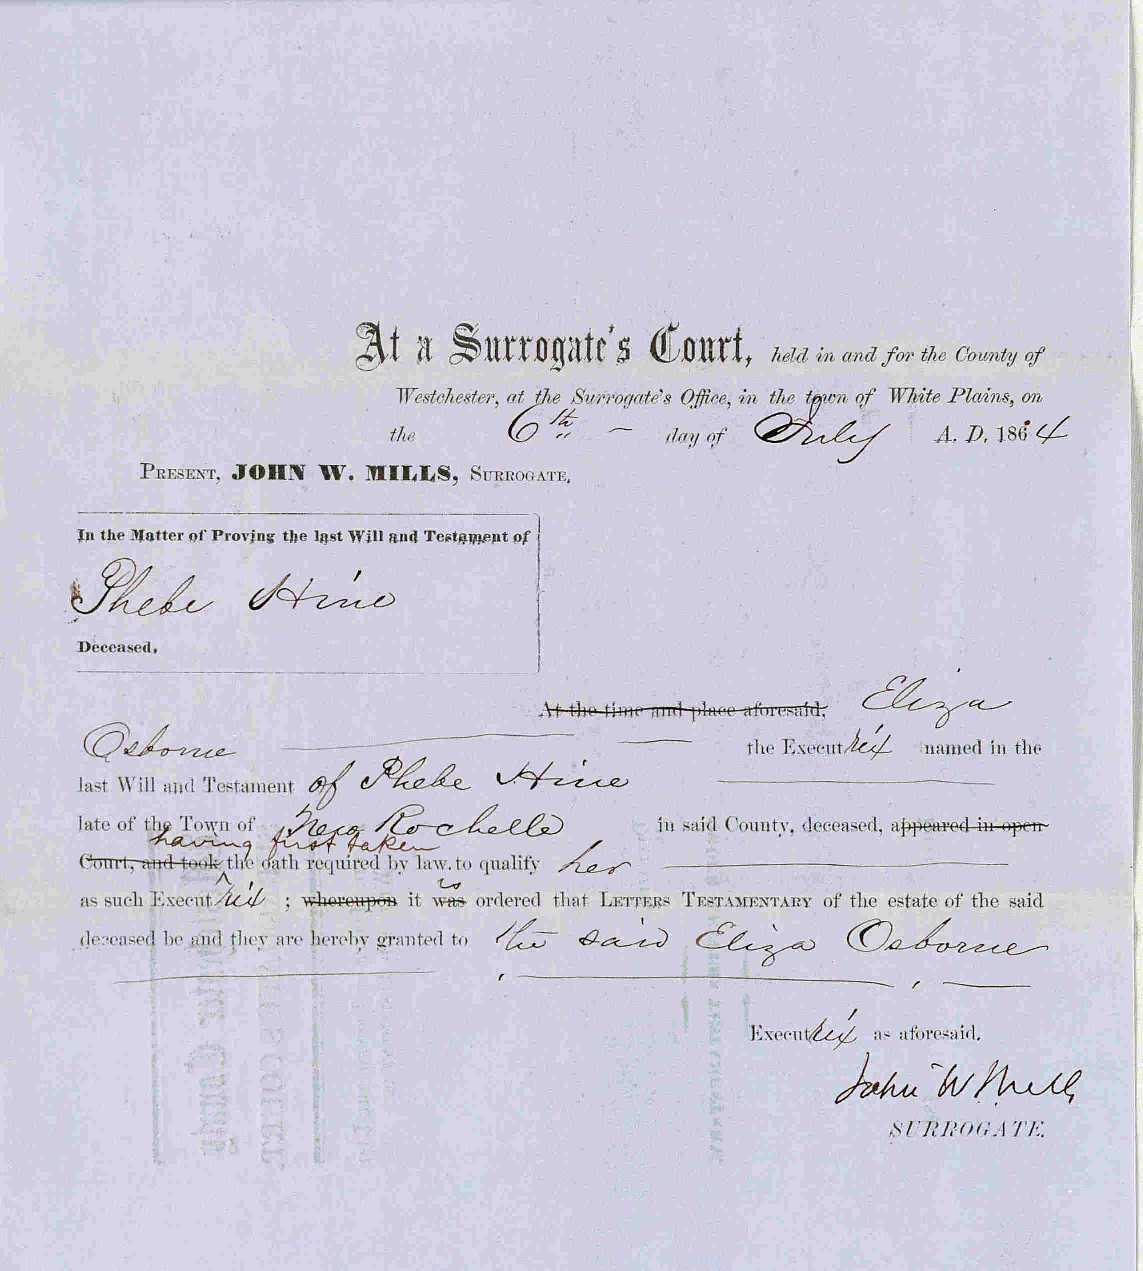 At a Surrogate's Court, held in and for the County of
Westchester, at the Surrogate's Office, in the town of White Plains, on
the 6th day of July A. D. 1864
PRESENT, JOHN W. MILLS, SURROGATE.
In the Matter of Proving the last Will and Testament of
Phebe Hine
Deceased.
At the time and place aforesaid, Eliza
Osborne the Executrix named in the
last Will and Testament of Phebe Hine
late of the Town of New Rochelle in said County, deceased, appeared in open
having first taken
Court, and took the oath required by law. to qualify her
is
as such Executrix ; whereupon it was ordered that LETTERS TESTAMENTARY of the estate of the said
deceased be and they are hereby granted to the said Eliza Osborne
Executrix as aforesaid.
John W Mills
SURROGATE.